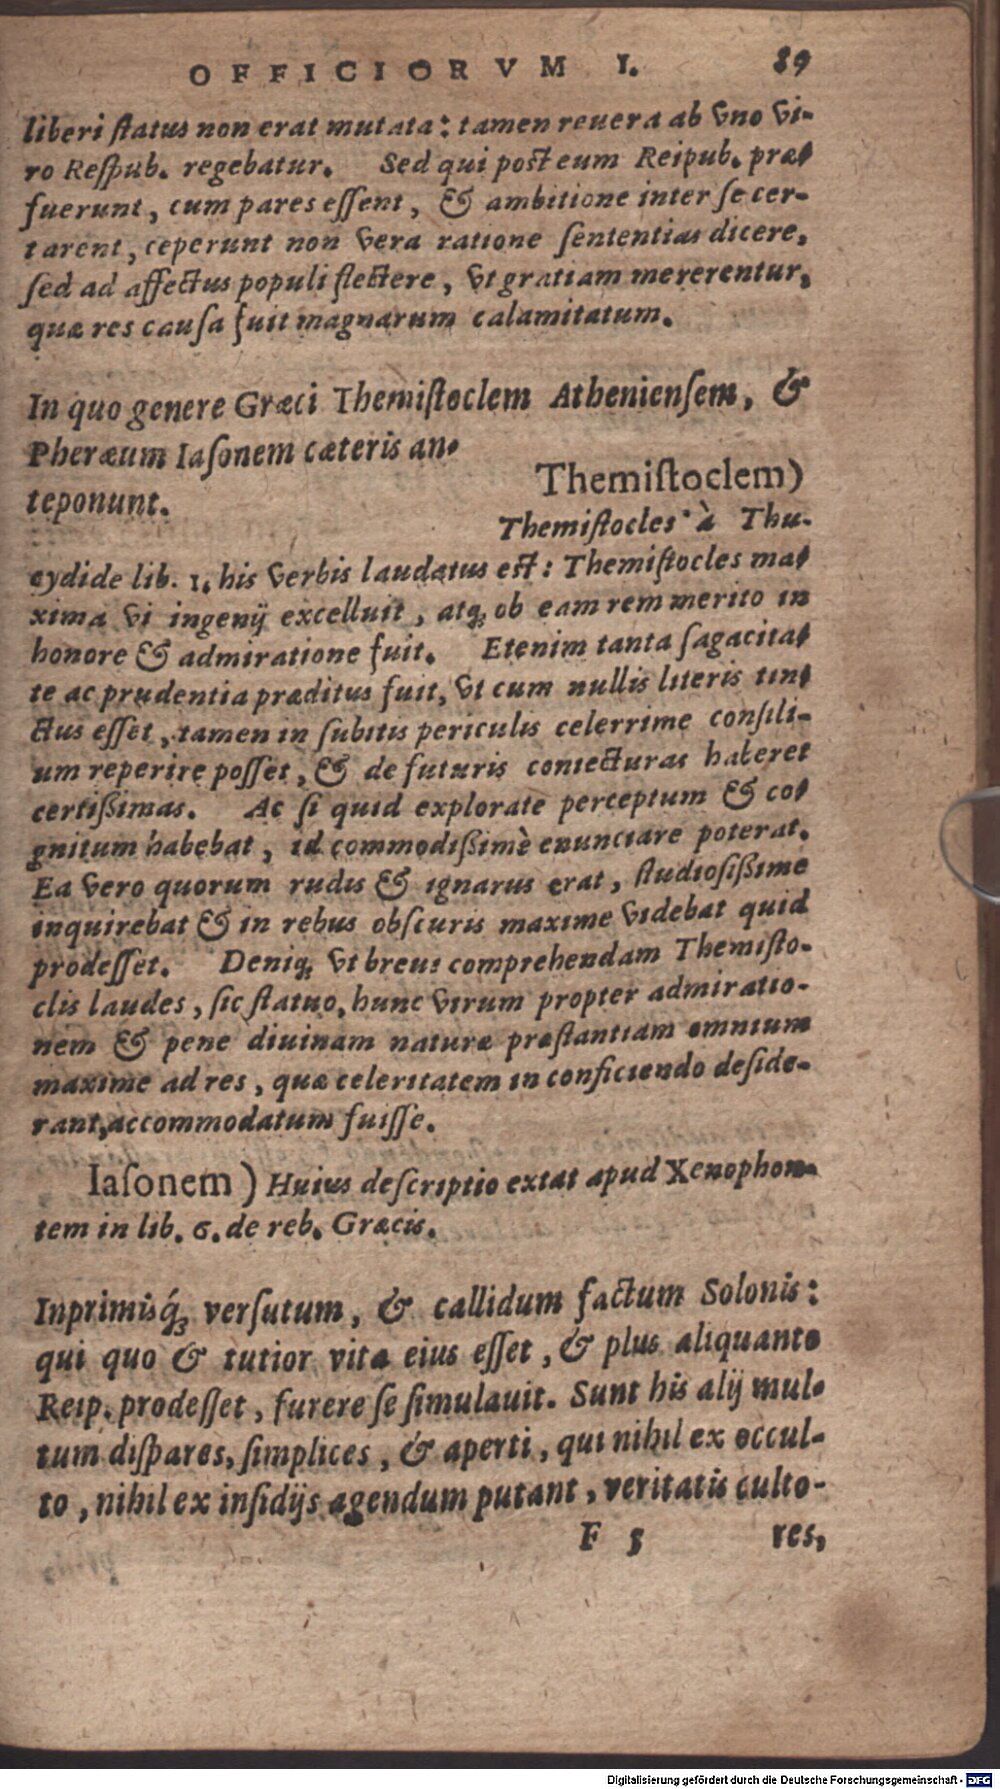 OFFICIORVM I. 89
liberi ſtatus non erat mutata: tamen reuera ab vno vi-
ro Reſpub. regebatur. Sed qui poſt eum Reipub. præ-
fuerunt, cum pares eſſent, & ambitione inter ſe cer-
tarent, ceperunt non vera ratione ſententias dicere,
ſed ad affectus populi flectere, vt gratiam mererentur,
quæ res cauſa fuit magnarum calamitatum.
In quo genere Græci Themiſtoclem Athenienſem, &
Pheræum Iaſonem cæteris an-
teponunt.
Themiſtoclem)
Themiſtocles à Thu-
cydide lib. 1. his verbis laudatus eſt: Themiſtocles ma-
xima vi ingenij excelluit, atq; ob eam rem merito in
honore & admiratione fuit. Etenim tanta ſagacita-
te ac prudentia præditus fuit, vt cum nullis literis tin-
ctus eſſet, tamen in ſubitis periculis celerrime conſili-
um reperire poſſet, & de futuris coniecturas haberet
certißimas. Ac ſi quid explorate perceptum & co-
gnitum habebat, id commodißimè enunciare poterat.
Ea vero quorum rudis & ignarus erat, ſtudioſißime
inquirebat & in rebus obſcuris maxime videbat quid
prodeſſet. Deniq; vt breui comprehendam Themiſto-
clis laudes, ſic ſtatuo, hunc virum propter admiratio-
nem & pene diuinam naturæ præſtantiam omnium
maxime ad res, quæ celeritatem in conficiendo deſide-
rant, accommodatum fuiſſe.
Iaſonem) Huius deſcriptio extat apud Xenophon-
tem in lib. 6. de reb. Græcis.
Inprimisq́; verſutum, & callidum factum Solonis:
qui quo & tutior vita eius eſſet, & plus aliquanto
Reip. prodeſſet, furere ſe ſimulauit. Sunt his alij mul-
tum diſpares, ſimplices, & aperti, qui nihil ex occul-
to, nihil ex inſidijs agendum putant, veritatis culto-
F 5 res,
Digitalisierung gefördert durch die Deutsche Forschungsgemeinschaft - DFG